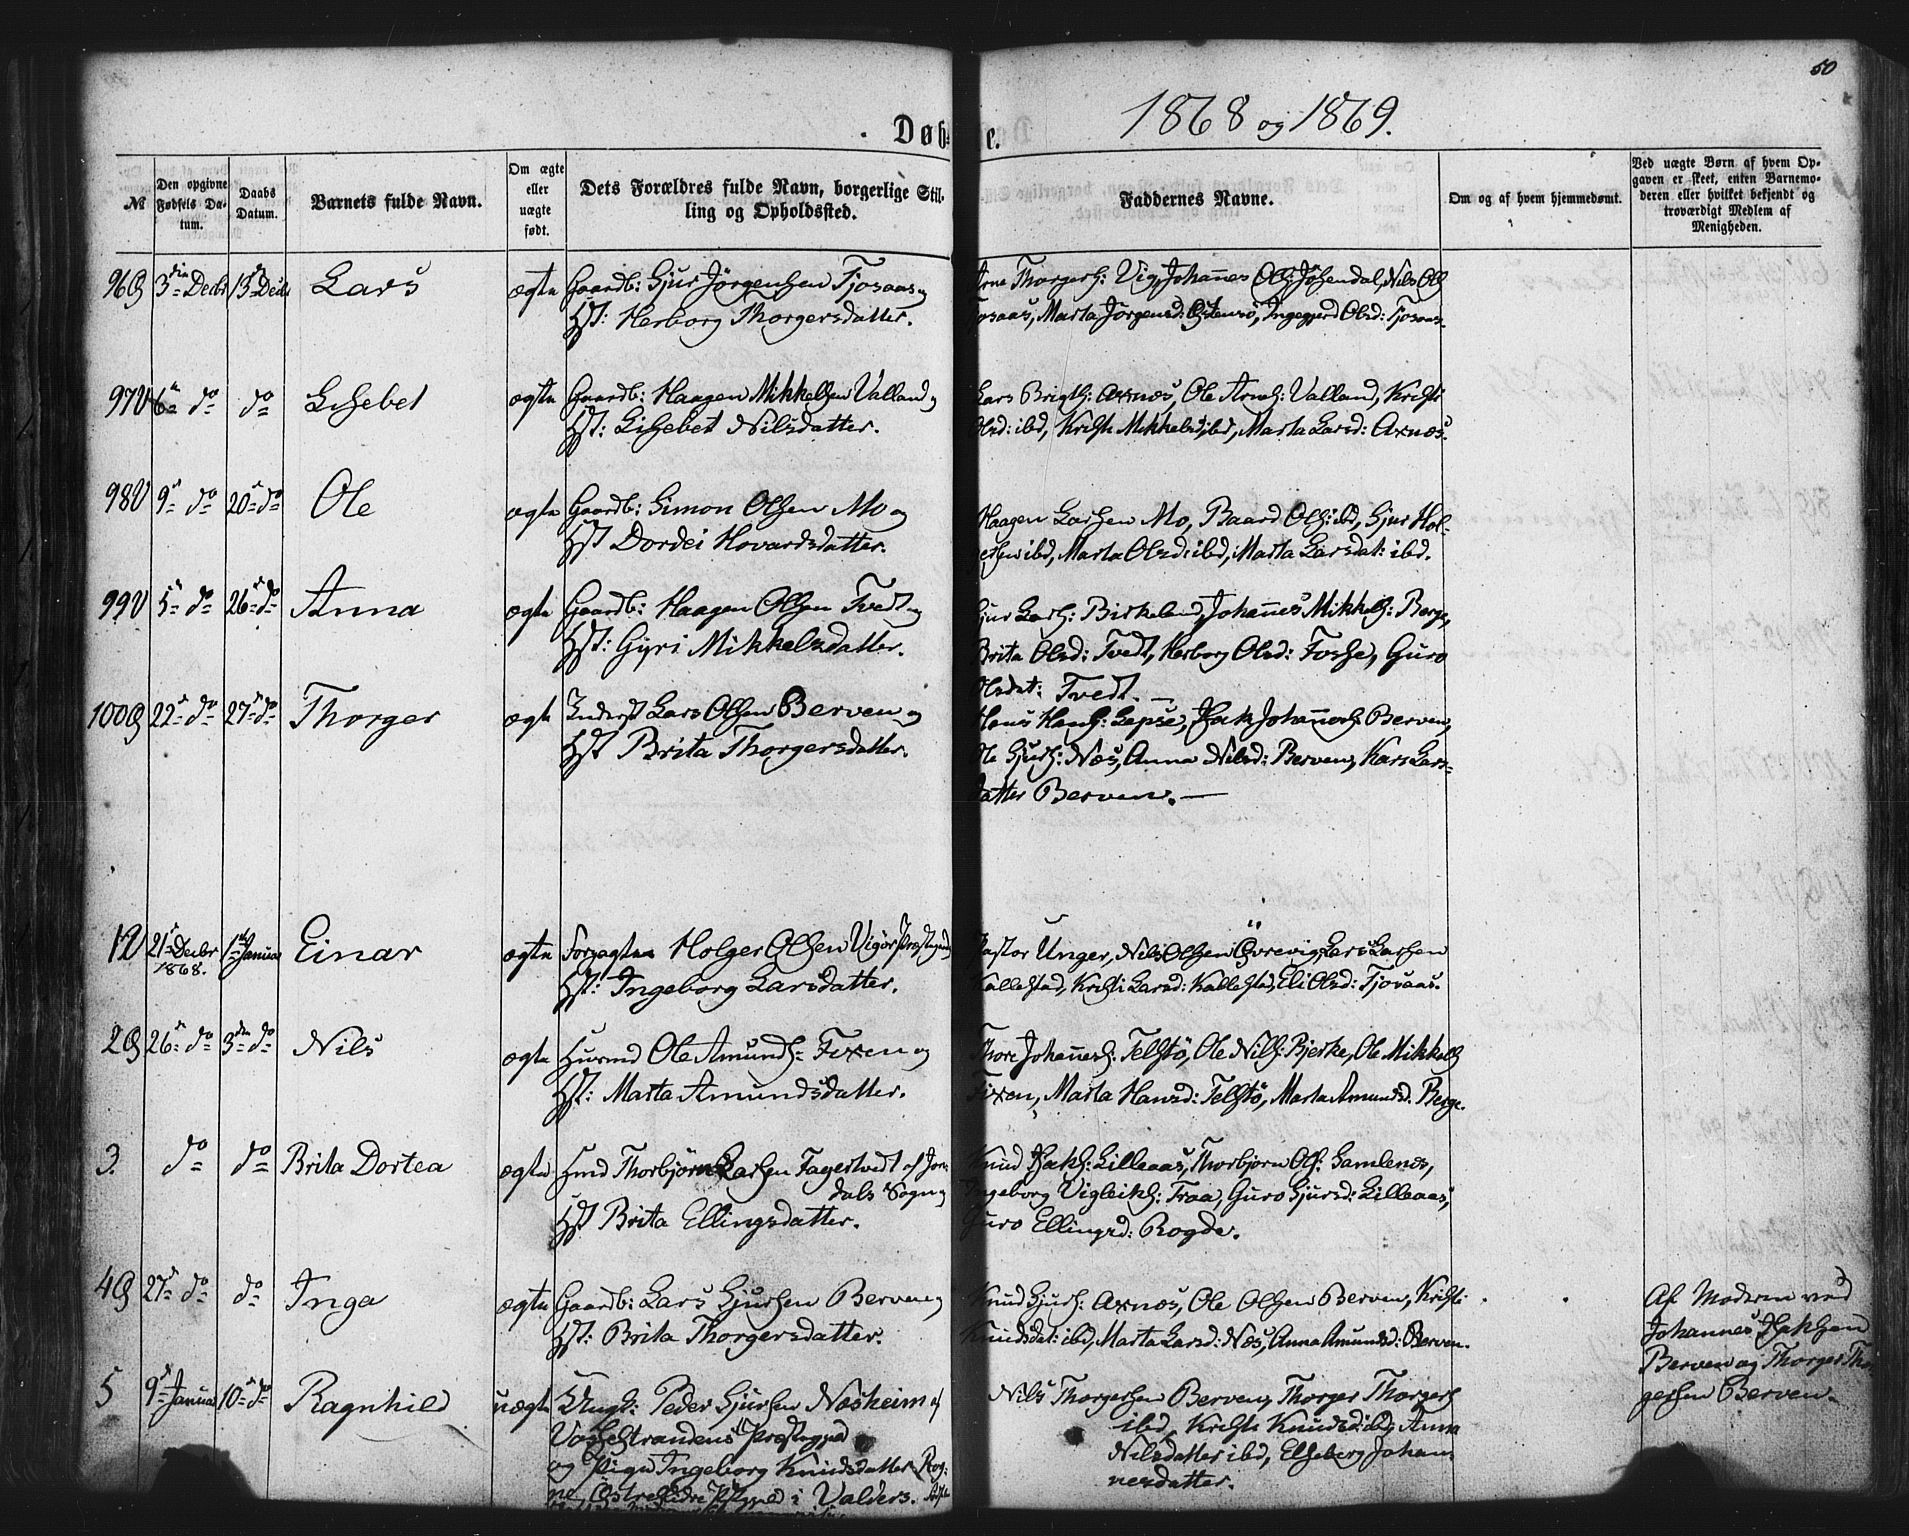 50
Døbte.
1868 og 1869.
№
Den opgivne Fødsels Datum.
Daabs Datum.
Barnets fulde Navn.
Om ægte eller uægte født.
Dets Forældres fulde Navn, borgerlige Stilling og Opholdssted.
Faddernes Navne.
Om og af hvem hjemmedømt.
Ved uægte Børn af hvem Opgaven er skeet, enten Barnemoderen eller hvilket bekjendt og troværdigt Medlem af Menigheden.
96 3die Decbr 13de Decbr Lars ægte Gaardb: Gjur Jörgensen Tjosaas og
Hst: Herborg Thorgersdatter.
Arne Thorgers: Vig, Johannes Ols: Nils Ols
Tjosaas, Marta Jörgensd: Ingegjerd Olsd: Tjosaas.
97V 6te do do Lisebet ægte Gaardb: Haagen Mikkelsen Valland og
Hst: Lisebet Nilsdatter.
Lars Brigts: Axnæs, Ole Arnes: Valland, Kristi
Olsd: ibd, Kristi Mikkelsd: ibd, Marta Larsd: Axnæs.
98V 9de do 20de do Ole ægte Gaardb: Simon Olsen Mo og
Hst Dordei Hovardsdatter.
Haagen Larsen Mo, Baard Ols: ibd, Gjur Hol-
gersen ibd, Marta Olsd: ibd, Marta Larsdat: ibd.
99V 5te do 26de do Anna ægte Gaardb: Haagen Olsen Tvedt og
Hst: Gyri Mikkelsdatter.
Gjur Lars: Birkeland, Johannes Mikkels: Berge,
Brita Olsd: Tvedt, Herborg Olsd: Fosse, Guro
Olsdat: Tvedt. —
100 22de do 27de do Thorger ægte Inderst Lars Olsen Berven og
Hst Brita Thorgersdatter.
Hans Hans: Lepsø, Isak Johannes Berven,
Ole Gjurs: Næs, Anna Nilsd: Berven, Kari Lars-
datter Berven. —
1V 21de Decbr 1868. 1ste Januar Einar ægte Forpagter Holger Olsen Vigör Præstegaard
Hst: Ingeborg Larsdatter.
Pastor Unger, Nils Olsen Övrevig, Lars Larsen
Kallestad, Kristi Larsd: Kallestad, Eli Olsd: Tjosaas.
2 26de do 3die do Nils ægte Husmd Ole Amunds: Fixen og
Hst: Marta Amundsdatter.
Thore Johannes: Telstö, Ole Nils: Bjerke, Ole Mikkels
Fixen, Marta Hansd: Telstö, Marta Amundsd. Berge.
3. do do Brita Dortea ægte Hmd Thorbjörn Larsen Fagertvedt af Jon-
dals Sogn og
Hst Brita Ellingsdatter.
Knud Isaks: Lilleaas, Thorbjörn Ols: Samlenes,
Ingeborg Vigleiks: Traa, Guro Gjursd: Lilleaas,
Guro Ellingsd: Rogde.
4 27de do do Inga ægte Gaardb: Lars Gjursen Berven og
Hst: Brita Thorgersdatter.
Knud Gjurs: Axnæs, Ole Olsen Berven, Kristi
Knudsdat: ibd, Marta Larsd: Næs, Anna Amundsd: Berven.
5 9de Januar 10de do Ragnhild uægte Ungk: Peder Gjursen Næsheim af
Vossestrandens Præstegjeld
og Pige Ingeborg Knudsdatter Rog-
ne, Östre Slidre Pgjeld i Valders.
Nils Thorgersen Berven, Thorger Thorgers
ibd, Kristi Knudsd: ibd, Anna
Nilsdatter ibd, Elseberg Johan-
nesdatter.
Af Moderen ved
Johannes Isaksen
Berven og Thorger Thor-
gersen Berven.